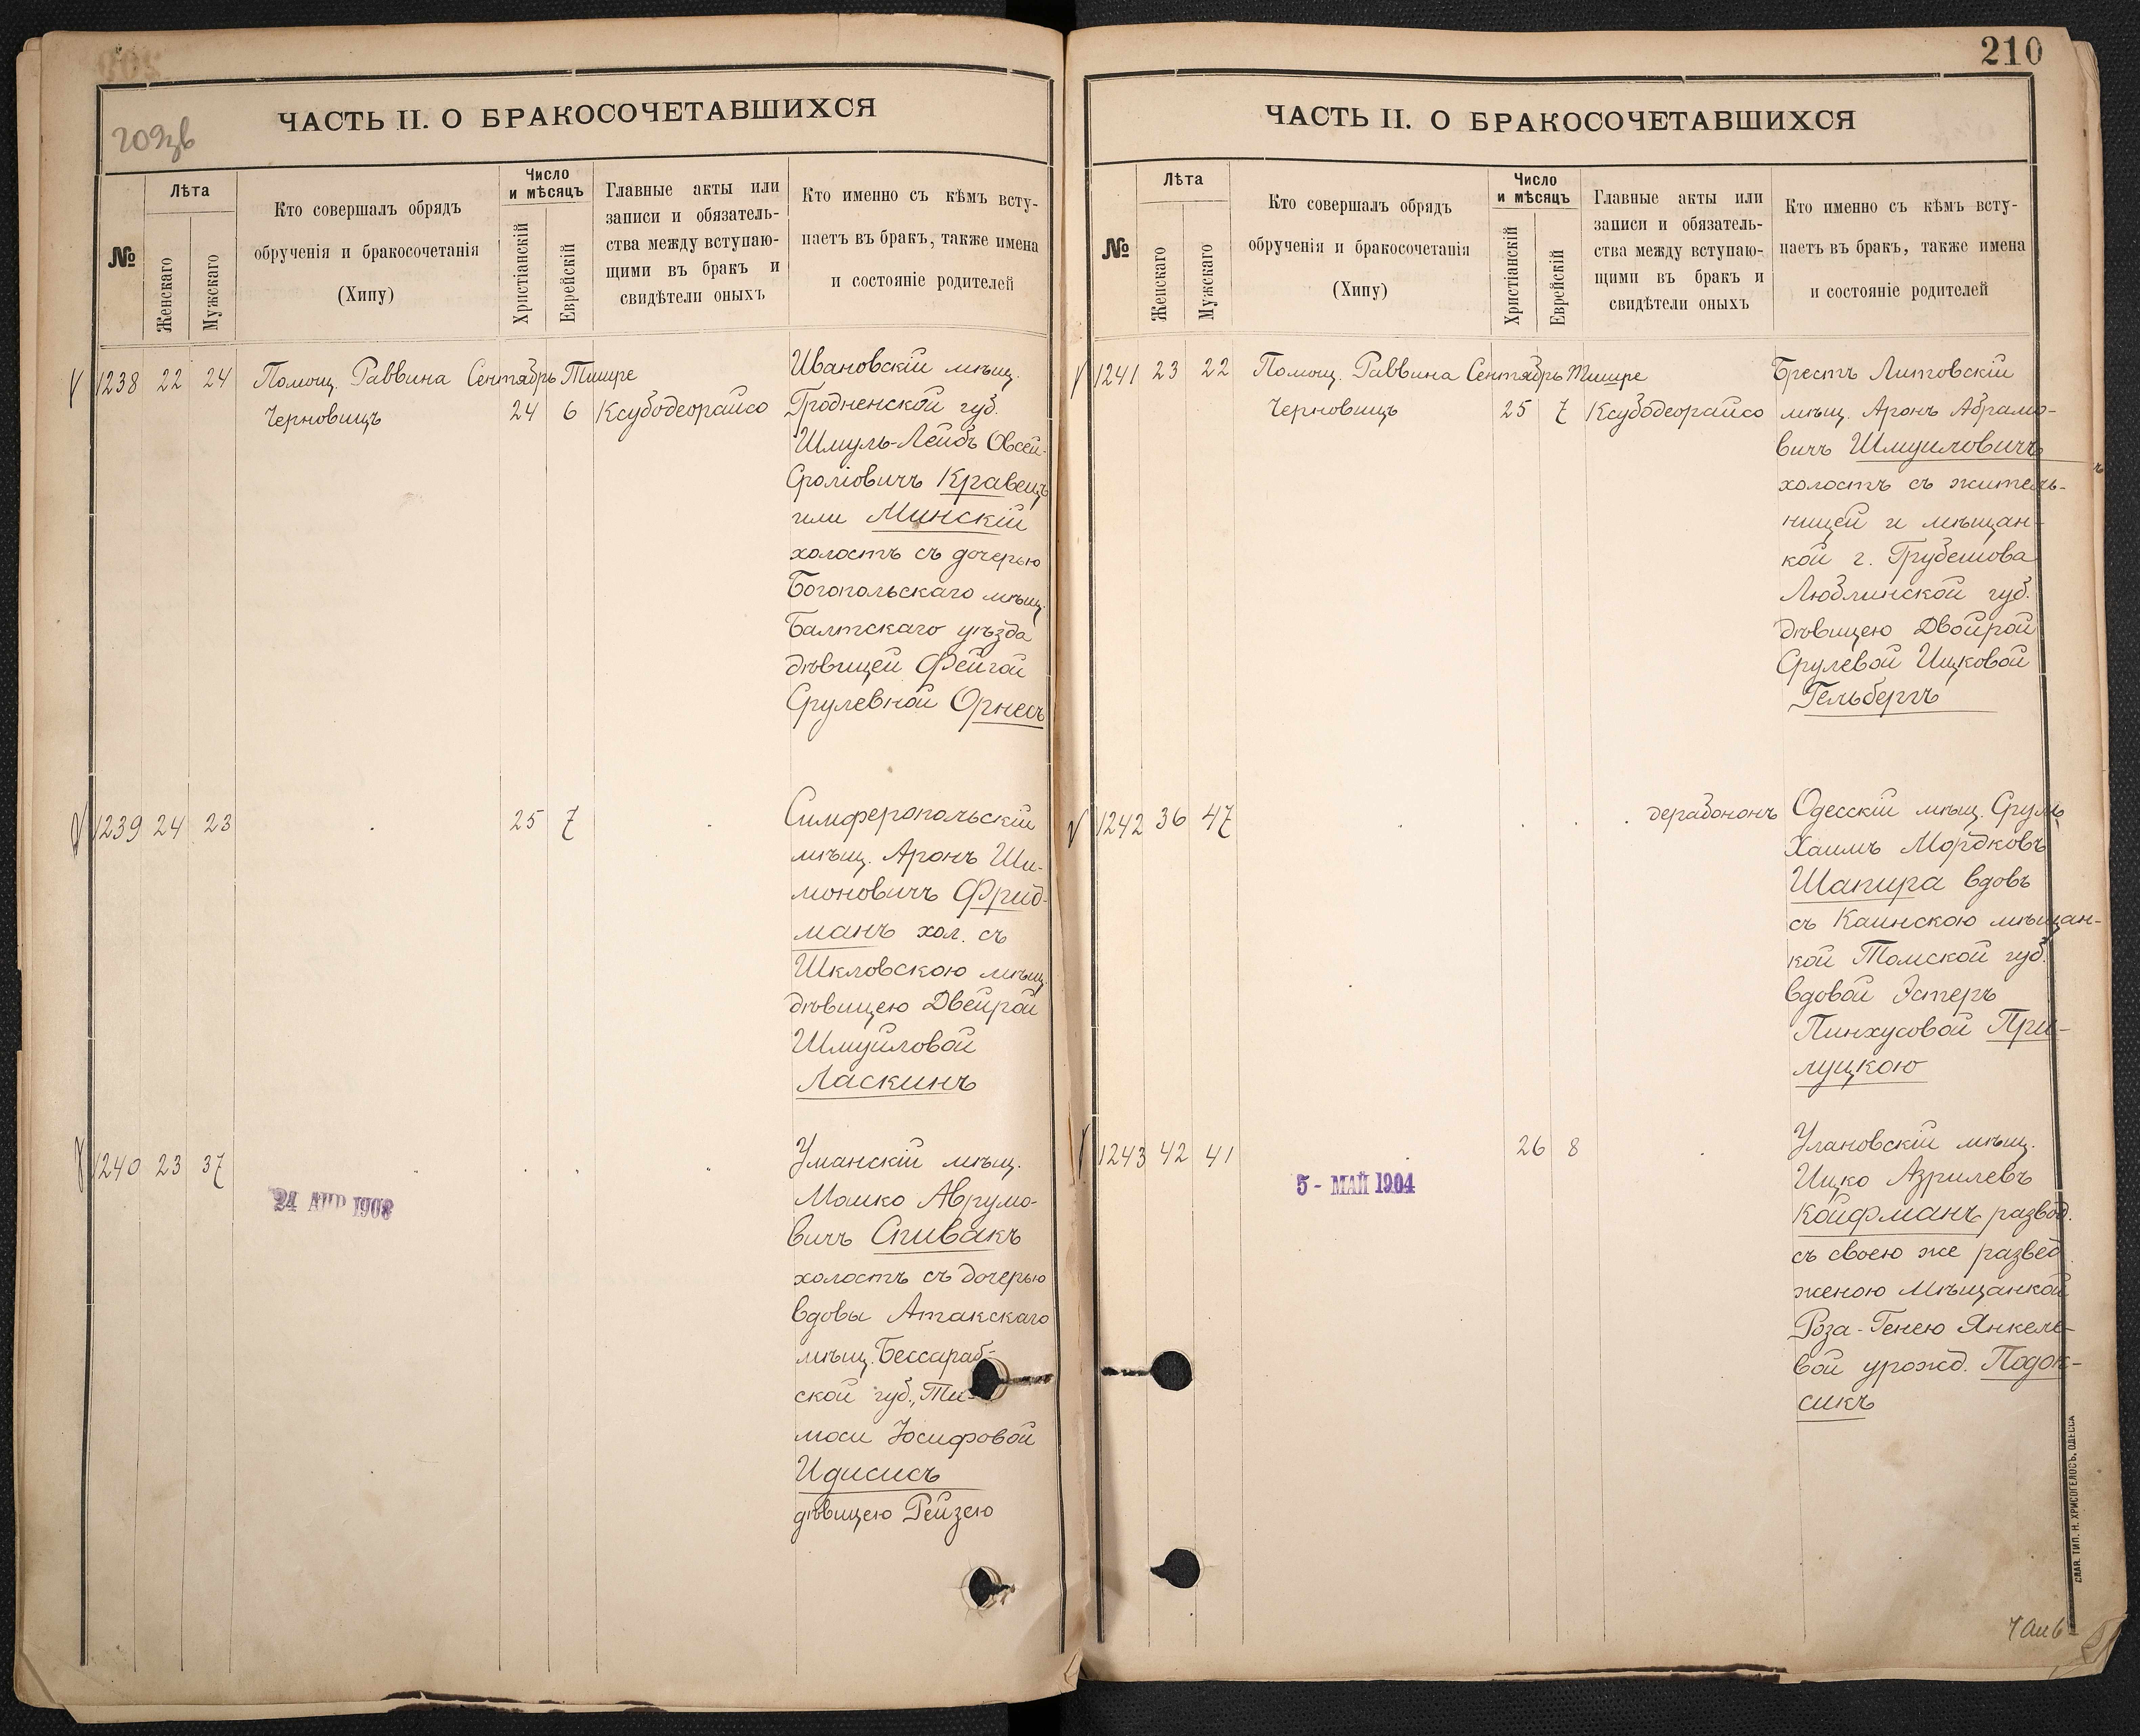 209зв
ЧАСТЬ II. О БРАКОСОЧЕТАВШИХСЯ
№
Лѣта
Женскаго
Мужскаго
Кто совершалъ обрядъ
обрученія и бракосочетанія
(Хипу)
Число
и мѣсяцъ
Христіанскій
Еврейскій
Главные акты или
записи и обязатель-
ства между вступаю-
щими въ бракъ и
свидѣтели оныхъ
Кто именно съ кѣмъ всту-
паетъ въ бракъ, также имена
и состояніе родителей
1238 22 24 Помощ. Раввина Сентябрь Тишре
Черновицъ 24 6 Ксубодеорайсо
Ивановскій мѣщ.
Гродненской губ.
Шмуль-Лейбъ Овсей-
Сроліовичъ Кравецъ
или Минскій
холостъ съ дочерью
Богопольскаго мѣщ.
Балтскаго уѣзда
дѣвицей Фейгой
Срулевной Орнесъ
1239 24 23 25 7
Симферопольскій
мѣщ. Аронъ Ши-
моновичъ Фрид-
манъ хол. съ
Шкловскою мѣщ.
дѣвицею Двейрой
Шмуйловой
Ласкинъ
1240 23 37
24 АПР 1908
Уманскій мѣщ.
Мошко Аврумо-
вичъ Спивакъ
холостъ съ дочерью
вдовы Атакскаго
мѣщ. Бессараб-
ской губ., Ти-
моси Іосифовой
Идисисъ
дѣвицею Рейзею
210
ЧАСТЬ II. О БРАКОСОЧЕТАВШИХСЯ
№
Лѣта
Женскаго
Мужскаго
Кто совершалъ обрядъ
обрученія и бракосочетанія
(Хипу)
Число
и мѣсяцъ
Христіанскій
Еврейскій
Главные акты или
записи и обязатель-
ства между вступаю-
щими въ бракъ и
свидѣтели оныхъ
Кто именно съ кѣмъ всту-
паетъ въ бракъ, также имена
и состояніе родителей
1241 23 22 Помощ. Раввина Сентябрь Тишре
Черновицъ 25 7 Ксубодеорайсо
Брестъ Литовскій
мѣщ. Аронъ Абрамо-
вичъ Шмуиловичъ
холостъ съ житель-
ницей и мѣщан-
кой г. Грубешова
Люблинской губ.
дѣвицею Двойрой
Срулевой Ицковой
Гельбергъ
1242 36 47 дерабононъ
Одесскій мѣщ. Сруль
Хаимъ Мордковъ
Шапира вдовъ
съ Каинскою мѣщан-
кой Томской губ.
вдовой Эстеръ
Пинхусовой При-
луцкою
1243 42 41 26 8
5 - МАЙ 1904
Улановскій мѣщ.
Ицко Азрилевъ
Койфманъ развод.
съ своею же развед.
женою Мѣщанкой
Роза-Генею Янкеле-
вой урожд. Подок-
сикъ
СЛАВ. ТИП. Н. ХРИСОГЕЛОСЪ, ОДЕССА